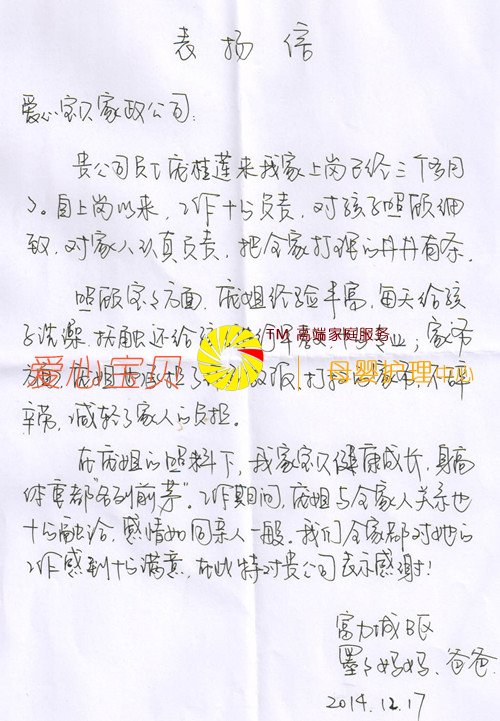 表扬信
爱心宝贝家政公司:
贵公司员工庞桂莲来我家上岗已经三个多月
了。自上岗以来,工作十分负责,对孩子照顾细
致,对家人认真负责,把全家打理的井井有条。
照顾宝宝方面,庞姐经验丰富,每天给孩
子洗澡、抚触还给 专业;家务
方面,庞姐 做饭、打扫 家务,不辞
辛劳,减轻了家人的负担。
TM 高端家庭服务
爱心宝贝 母婴护理中心
在庞姐的照料下,我家宝贝健康成长,身高
体重都"名列前茅"。工作期间,庞姐与全家人关系也
十分融洽,感情如同亲人一般。我们全家都对她的
工作感到十分满意,在此特对贵公司表示感谢!
富力城B区
墨墨妈妈、爸爸
2014.12.17